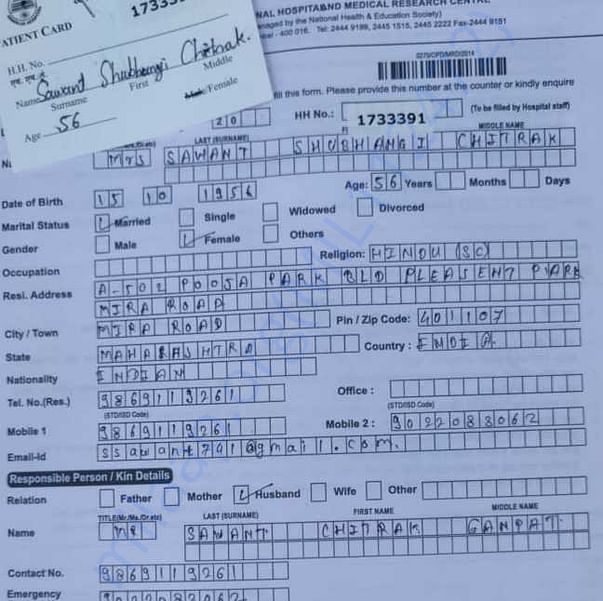 1733
ATIENT CARD
H.H. No.
एच. एच. नं.
Name Sawant Shubhangi Chitrak.
Surname First Middle
Male/Female
Age 56
NAL HOSPITAL AND MEDICAL RESEARCH CENTRE
anaged by the National Health & Education Society)
- 400 016. Tel: 2444 9199, 2445 1515, 2445 2222 Fax-2444 9151
0279/OPD/MRD/2014
fill this form. Please provide this number at the counter or kindly enquire
20
HH No.: 1733391 (To be filled by Hospital staff)
LAST (SURNAME) MIDDLE NAME
Mrs SAWANT SHUBHANGI CHITRAK
Date of Birth 15 10 1956 Age: 56 Years Months Days
Marital Status Married Single Widowed Divorced
Gender Male Female Others
Occupation Religion: HINDU (SC)
Resi. Address A-502 POOJA PARK BLD PLEASENT PARK
MIRA ROAD
City / Town MIRA ROAD Pin / Zip Code: 401107
State MAHARASHTRA Country : INDIA
Nationality INDIAN
Tel. No.(Res.) 9869119261 Office :
(STD/ISD Code) (STD/ISD Code)
Mobile 1 9869119261 Mobile 2 : 9022088062
Email-id ssawant791@gmail.com.
Responsible Person / Kin Details
Relation Father Mother Husband Wife Other
TITLE(Mr/Ms./Dr.etc) LAST (SURNAME) FIRST NAME MIDDLE NAME
Name MR SAWANT CHITRAK GANPAT
Contact No. 9869119261
Emergency